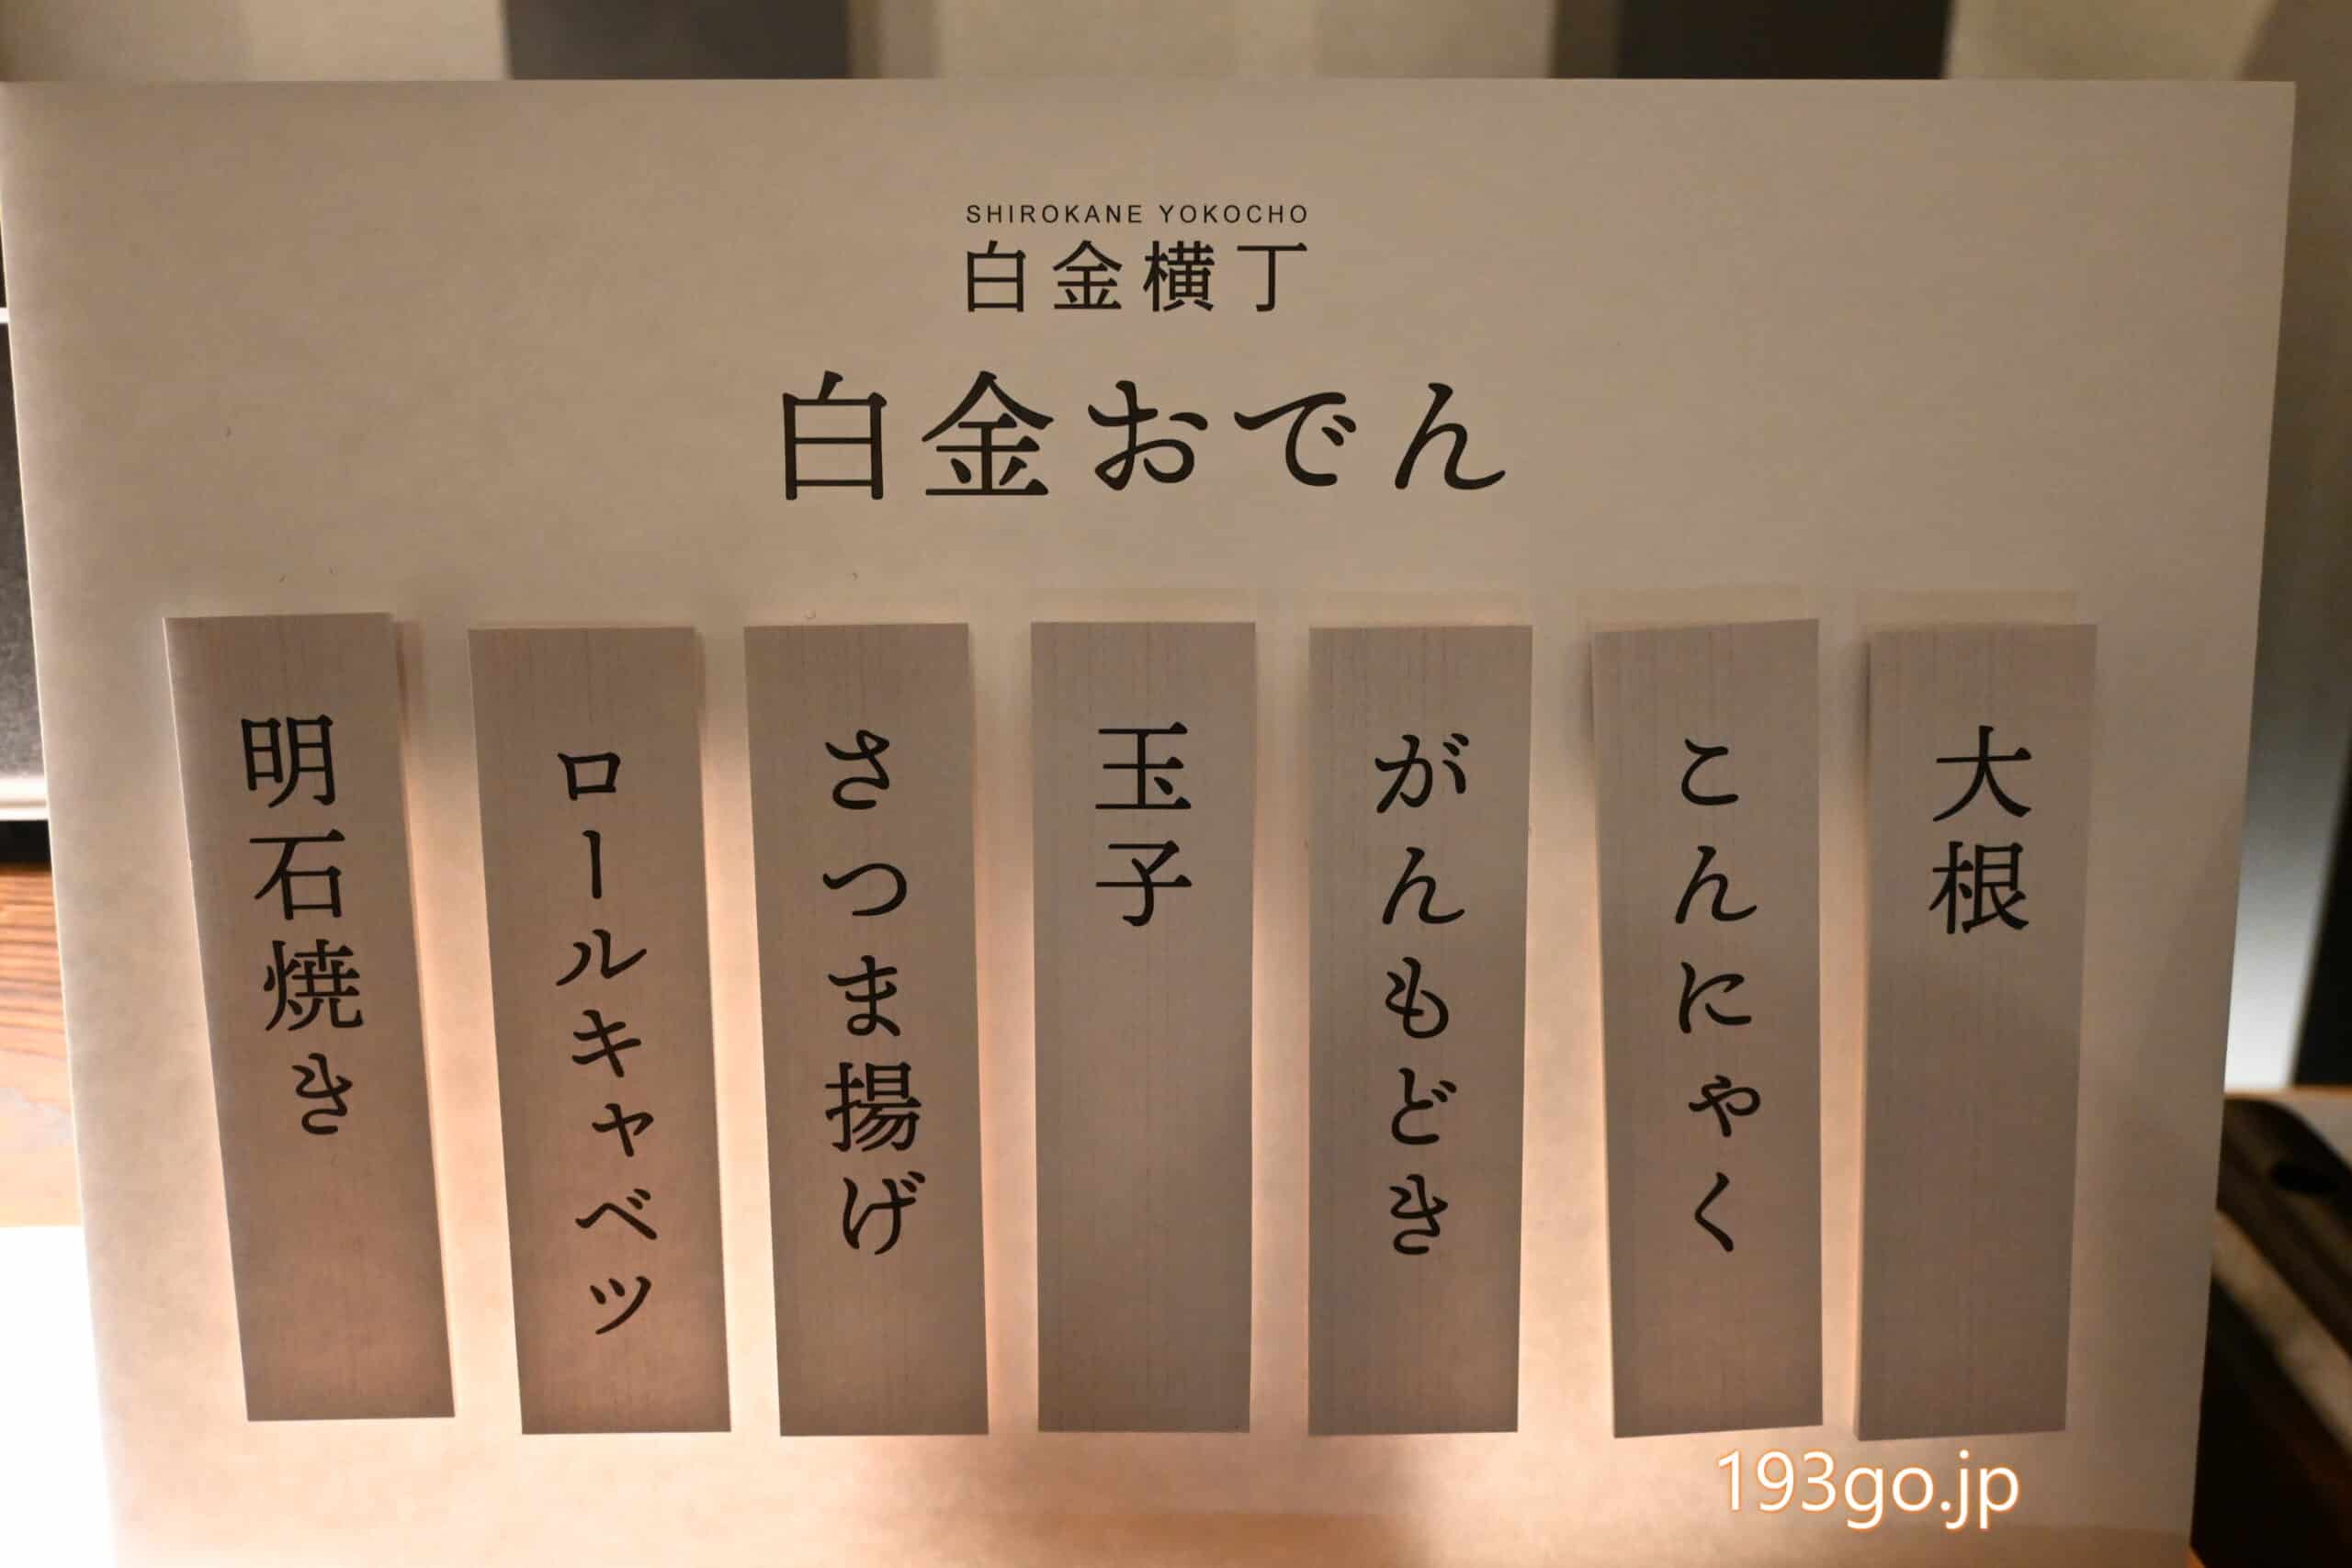 SHIROKANE YOKOCHO
白金横丁
白金おでん
大根
こんにゃく
がんもどき
玉子
さつま揚げ
ロールキャベツ
明石焼き
193go.jp